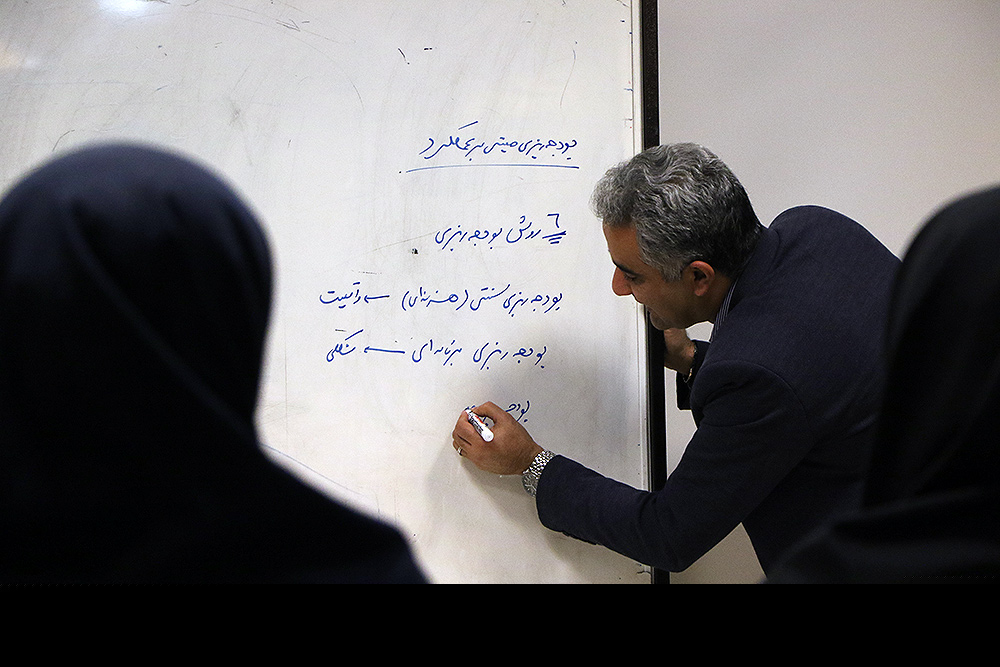 بودجه ریزی مبتنی بر عملکرد
۶ روش بودجه ریزی
بودجه ریزی سنتی (هزینه‌ای) ← واقعیت
بودجه ریزی برنامه ای ← شکلی
بودجه